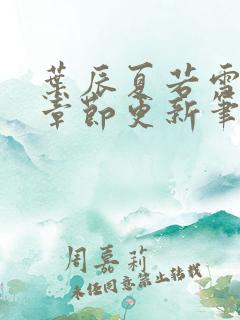 葉辰夏若雪
章節更新筆
周嘉莉
未经同意禁止转载